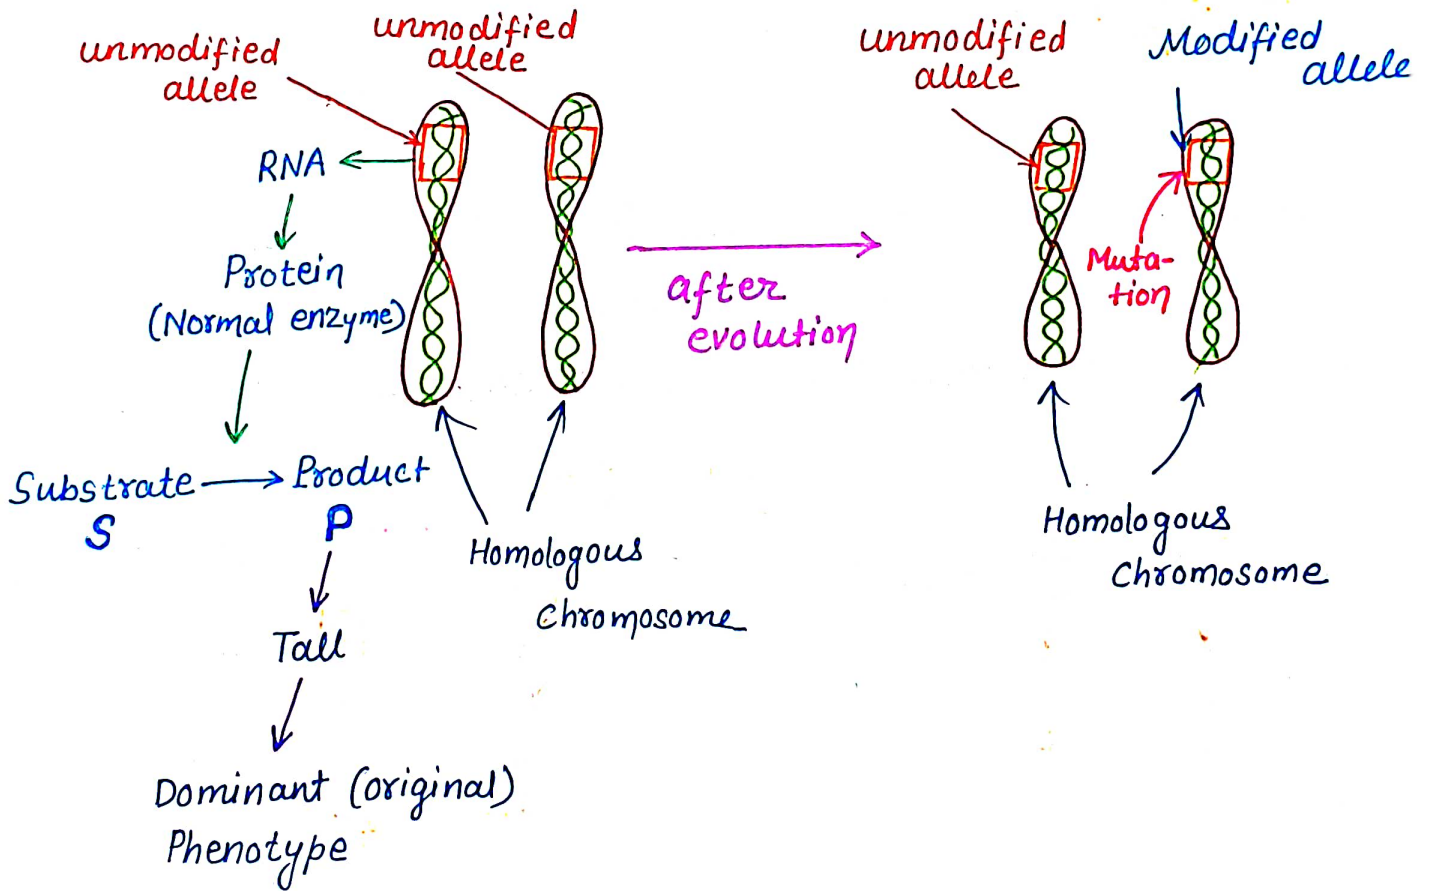 unmodified
allele
unmodified
allele
RNA
Protein
(Normal enzyme)
Substrate
S
Product
P
Tall
Dominant (original)
Phenotype
Homologous
Chromosome
after
evolution
unmodified
allele
Modified
allele
Muta-
tion
Homologous
Chromosome